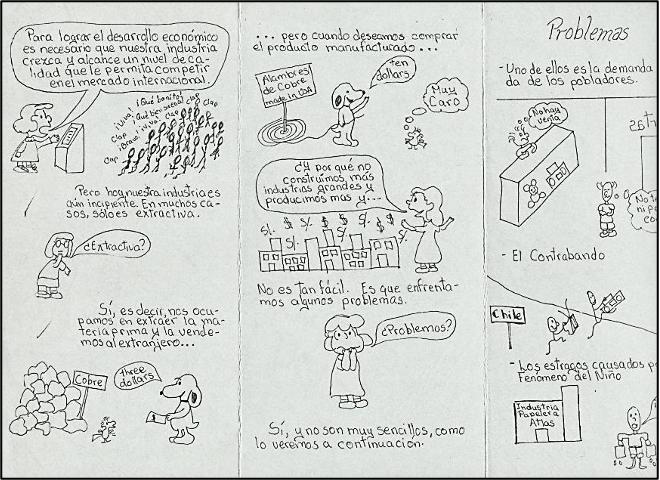 Para lograr el desarrollo económico
es necesario que nuestra industria
crezca y alcance un nivel de ca-
lidad que le permita competir
en el mercado internacional.
¡Qué bonito!
¡Viva!
¡Qué bien suena!
Clap
Clap
Clap
¡Bravo!
¡Viva!
Clap
Clap
Pero hoy nuestra industria es
aún incipiente. En muchos ca-
sos, sólo es extractiva.
¿Extractiva?
Sí, es decir, nos ocu-
pamos en extraer la ma-
teria prima y la vende-
mos al extranjero...
Cobre
three
dollars
... pero cuando deseamos comprar
el producto manufacturado...
Alambres
de Cobre
made in USA
ten
dollars
Muy
Caro
¿Y por qué no
construimos más
industrias grandes y
producimos más y...
S/. $ S/. $ S/. $ S/. $ S/.
No es tan fácil. Es que enfrenta-
mos algunos problemas.
¿Problemas?
Sí, y no son muy sencillos, como
lo veremos a continuación.
Problemas
- Uno de ellos es la demanda
da de los pobladores.
No hay
venta
No t
ni p
co
- El Contrabando
Chile
- Los estragos causados p
fenómeno del Niño
Industria
Papelera
Atlas